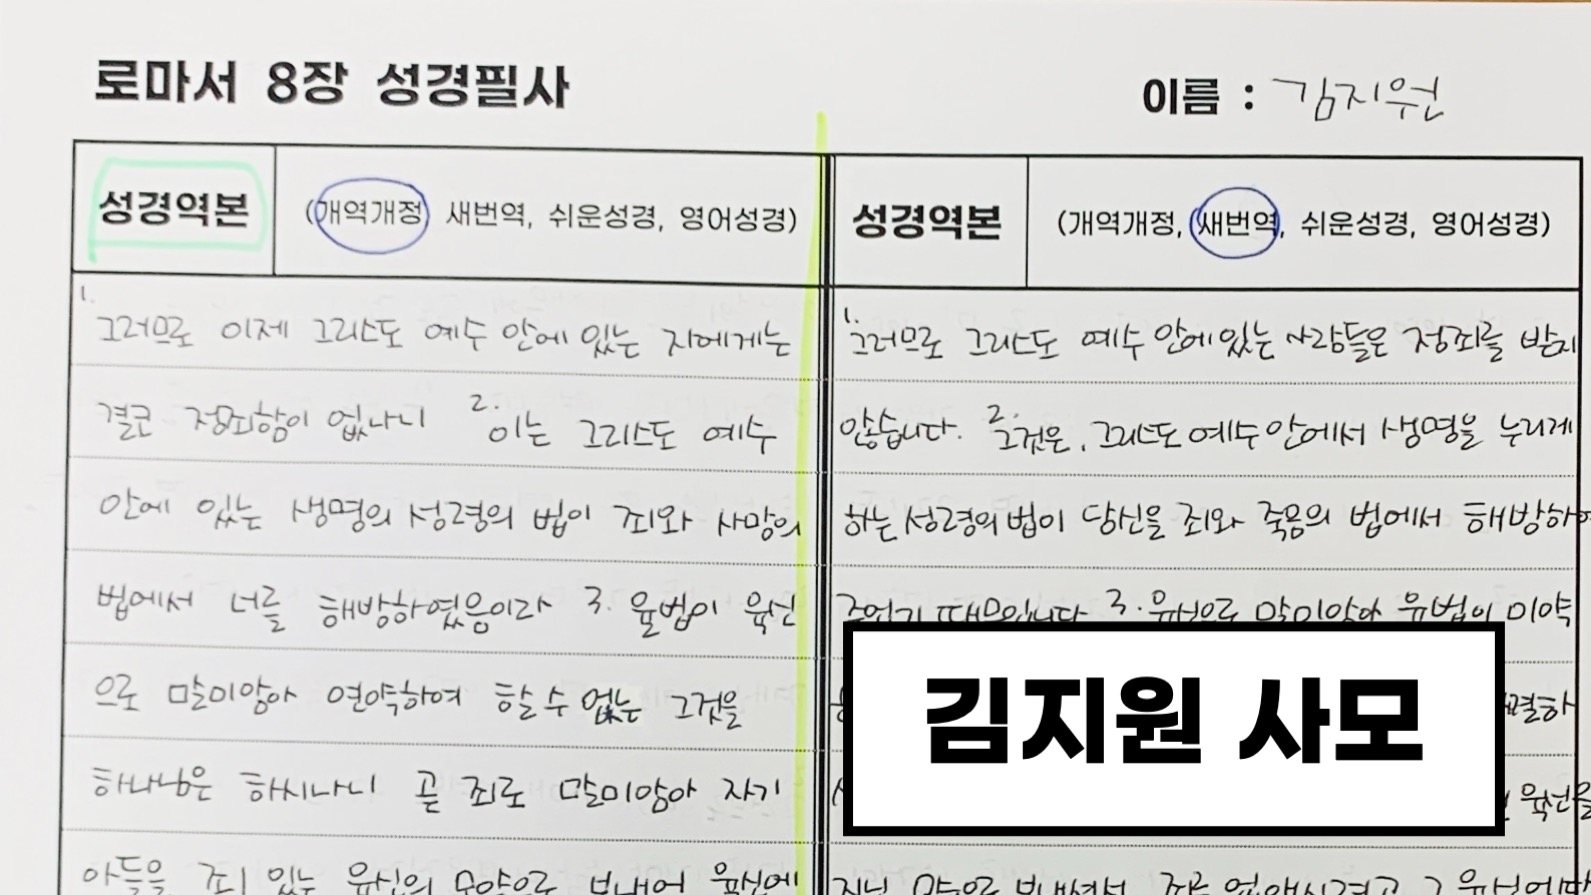 로마서 8장 성경필사
이름 : 김지원
성경역본
(개역개정 새번역, 쉬운성경, 영어성경)
1.
그러므로 이제 그리스도 예수 안에 있는 자에게는
결코 정죄함이 없나니 2. 이는 그리스도 예수
안에 있는 생명의 성령의 법이 죄와 사망의
법에서 너를 해방하였음이라 3. 율법이 육신
으로 말미암아 연약하여 할 수 없는 그것을
하나님은 하시나니 곧 죄로 말미암아 자기
아들을 죄 있는 육신의 모양으로 보내어 육신에
성경역본
(개역개정, 새번역, 쉬운성경, 영어성경)
1.
그러므로 그리스도 예수 안에 있는 사람들은 정죄를 받지
않습니다. 2. 그것은, 그리스도 예수 안에서 생명을 누리게
하는 성령의 법이 당신을 죄와 죽음의 법에서 해방하여
주었기 때문입니다 3. 육신으로 말미암아 율법이 미약
해결하
육신을
지닌 모습으로 보내셔서, 죄를 없애시려고 그 육신에
김지원 사모